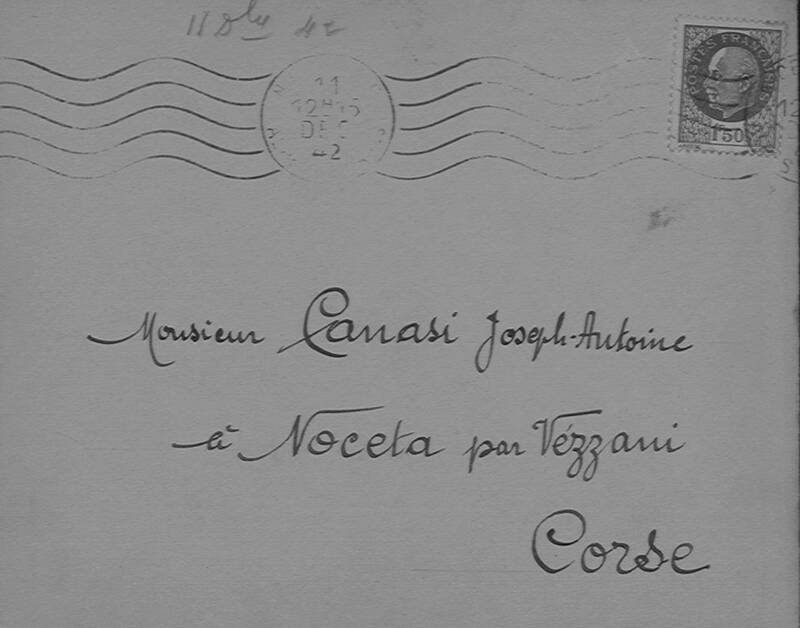 11 Dbre 42
11
12H15
DEC
42
POSTES FRANÇAISES
1F50
12
Monsieur Canasi Joseph-Antoine
à Noceta par Vézzani
Corse